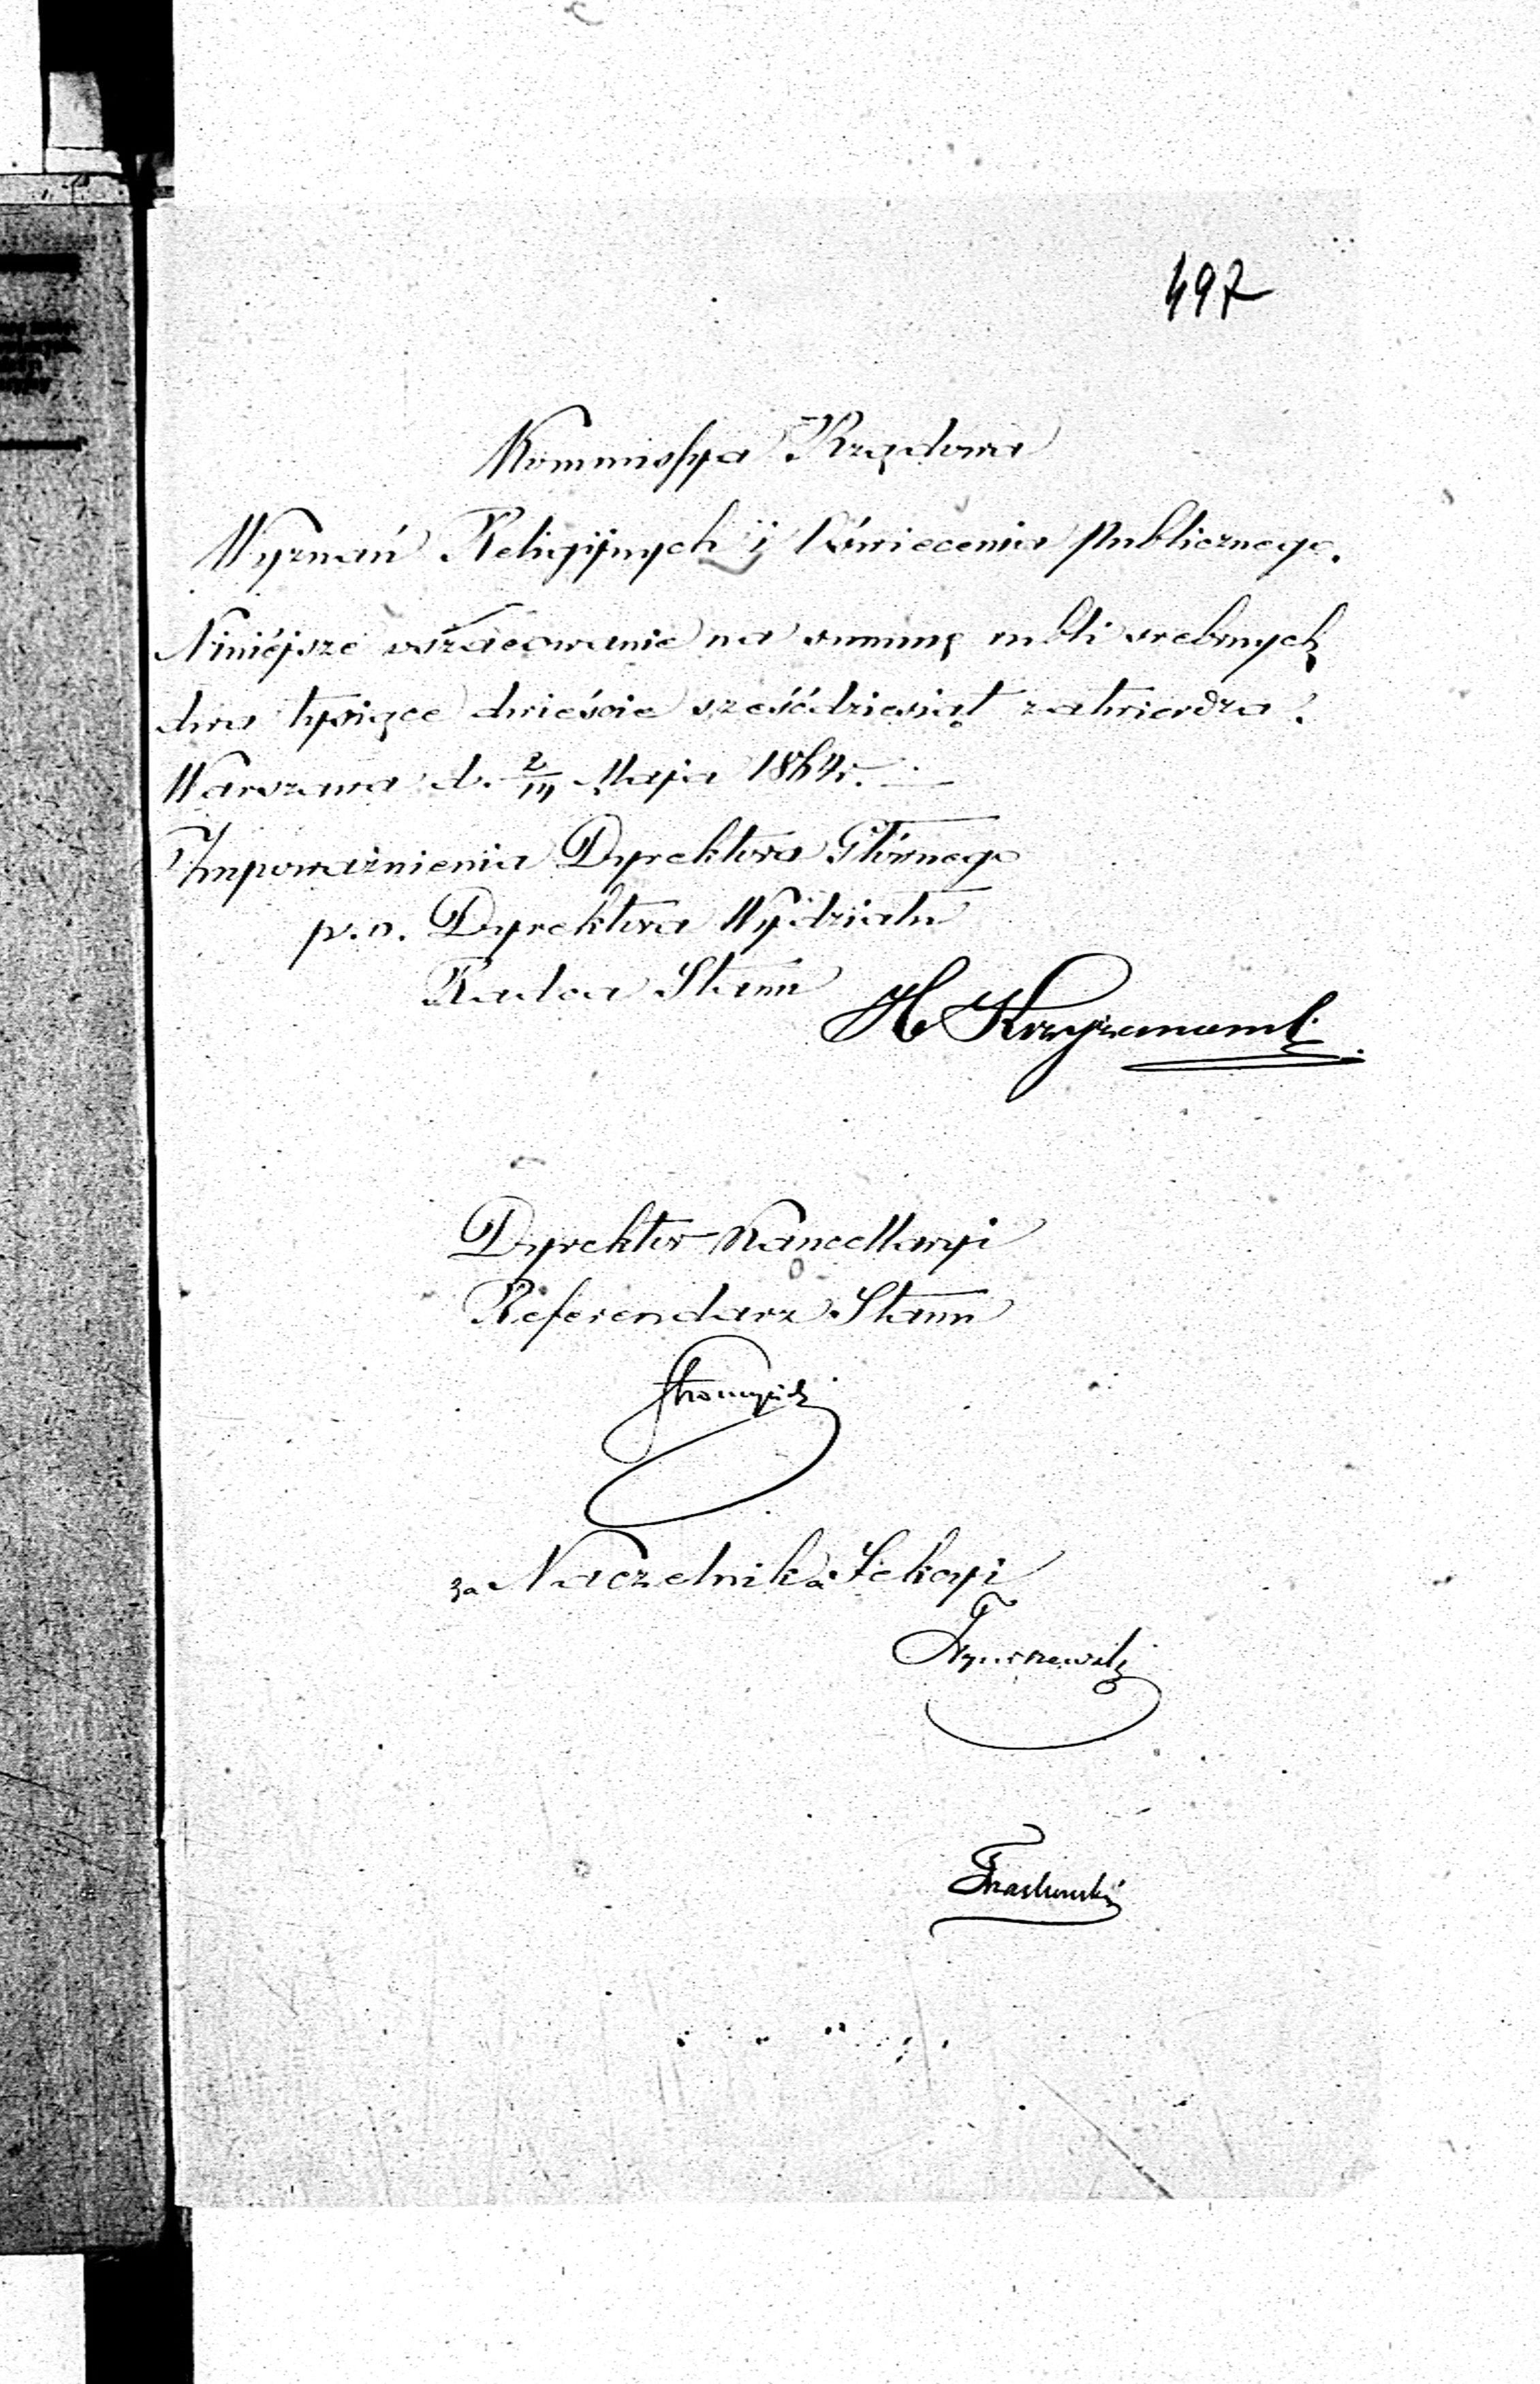 497
Kommissya Rządowa
Wyznań Religijnych i Oświecenia Publicznego.
Niniéjsze oszacowanie na summę rubli srebrnych
dwa tysiące dwieście sześćdziesiąt zatwierdza.
Warszawa d. 2/14 Maja 1864 r.
Z upoważnienia Dyrektora Głównego
p.o. Dyrektora Wydziału
Radca Stanu H Krzyżanowski
Dyrektor Kancellaryi
Referendarz Stanu
za Naczelnika Sekcyi